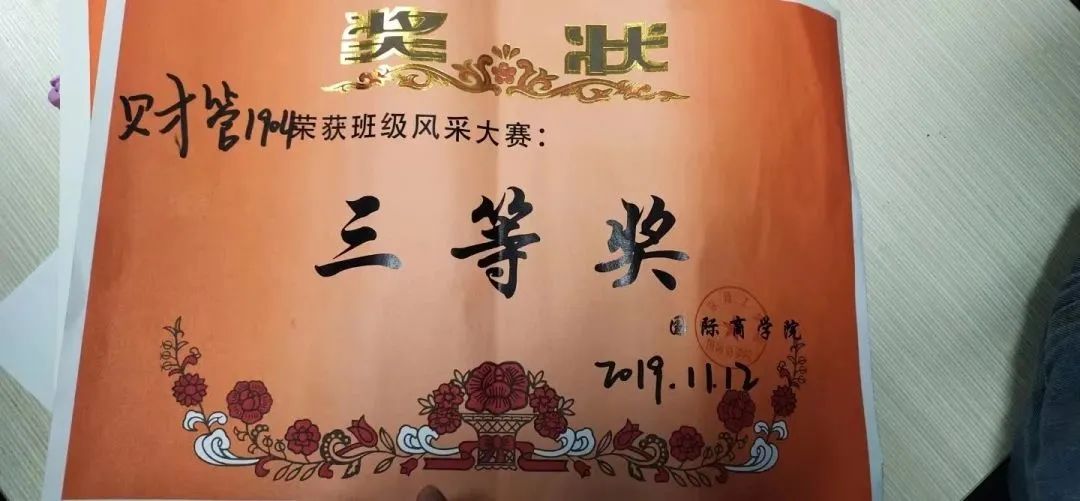 奖状
财管1904荣获班级风采大赛：
三等奖
国际商学院
2019.11.12